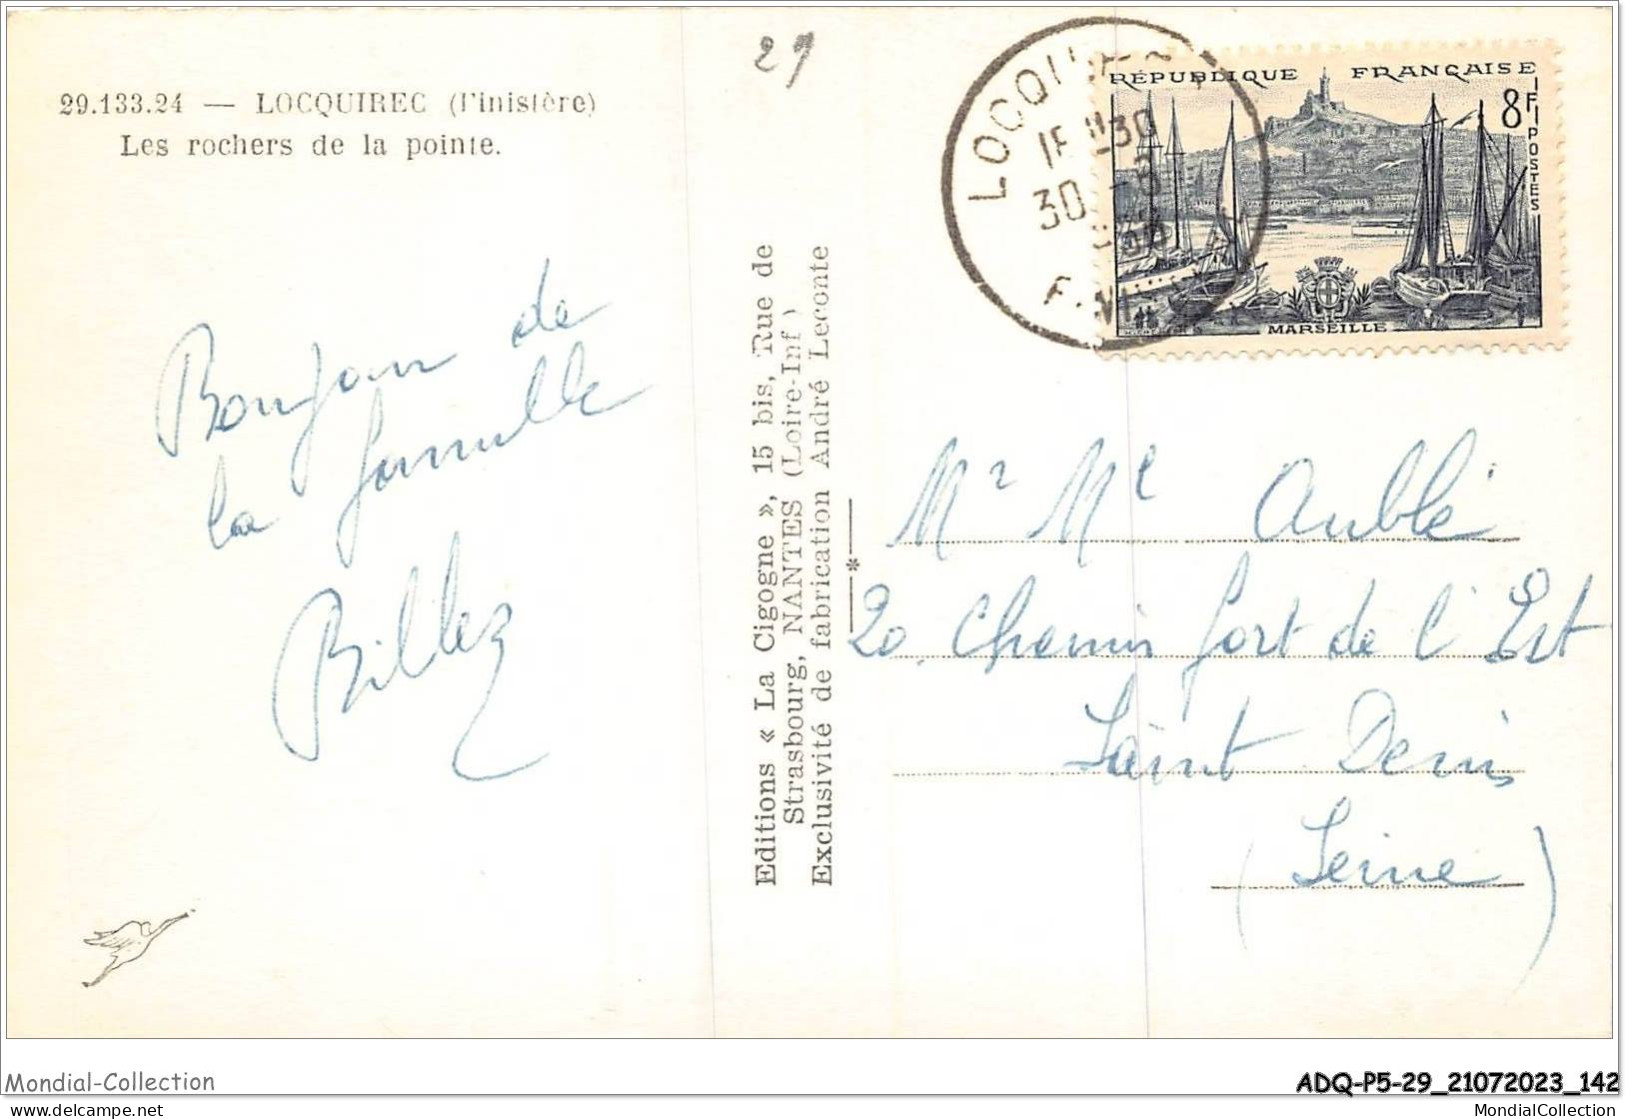 29
29.133.24 — LOCQUIREC (Finistère)
Les rochers de la pointe.
Bonjour de
la famille
Billez
Editions « La Cigogne », 15 bis, Rue de
Strasbourg, NANTES (Loire-Inf)
Exclusivité de fabrication André Leconte
RÉPUBLIQUE FRANÇAISE
8F
POSTES
MARSEILLE
30
Mr Me Aublé
20 Chemin fort de l'Est
Saint Denis
(Seine)
Mondial-Collection
ADQ-P5-29_21072023_142
www.delcampe.net
MondialCollection